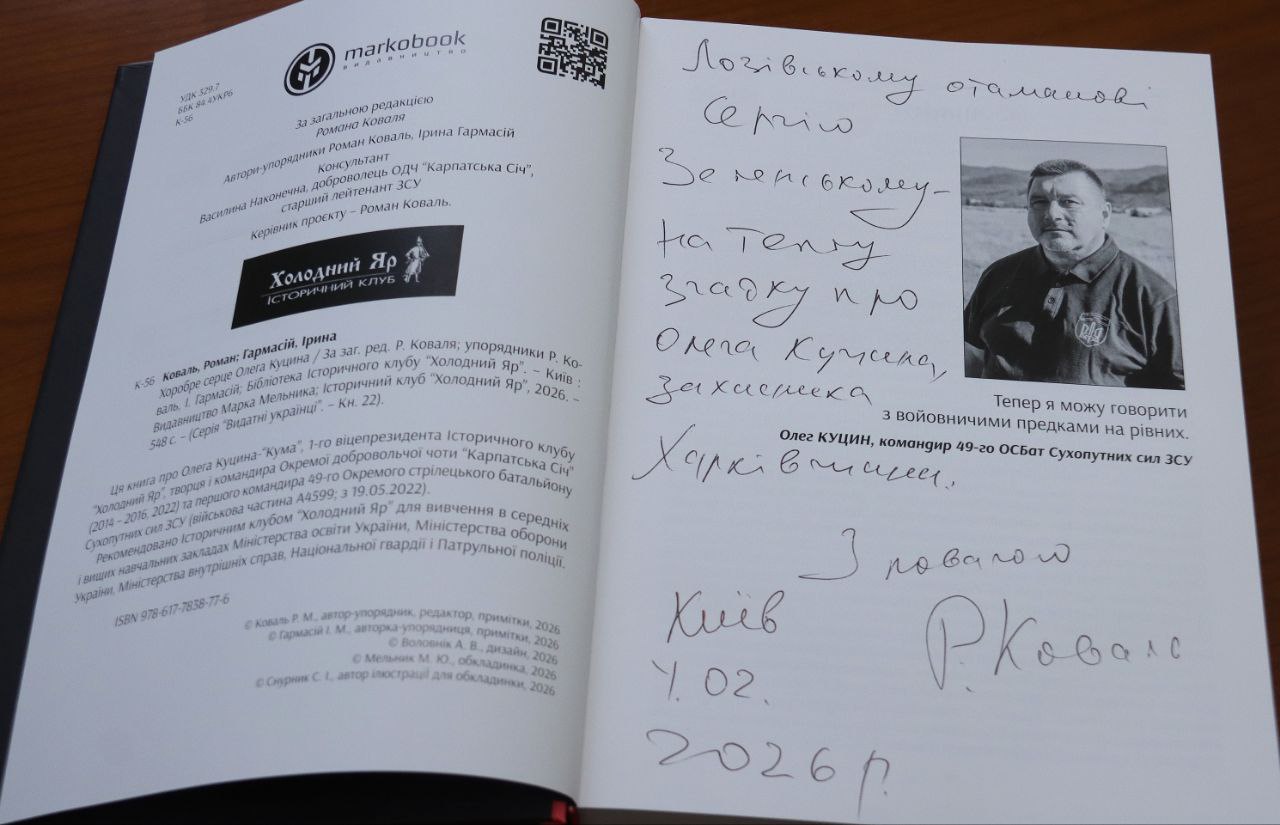 markobook
видавництво
УДК 329.7
ББК 84.4УКР6
К-56
За загальною редакцією
Романа Коваля
Автори-упорядники Роман Коваль, Ірина Гармасій
Консультант
Василина Наконечна, доброволець ОДЧ “Карпатська Січ”,
старший лейтенант ЗСУ
Керівник проєкту – Роман Коваль.
Холодний Яр
ІСТОРИЧНИЙ КЛУБ
Коваль, Роман; Гармасій, Ірина
К-56 Хоробре серце Олега Куцина / За заг. ред. Р. Коваля; упорядники Р. Ко-
валь, І. Гармасій; Бібліотека Історичного клубу “Холодний Яр”. – Київ :
Видавництво Марка Мельника; Історичний клуб “Холодний Яр”, 2026. –
548 с. – (Серія “Видатні українці”. – Кн. 22).
Ця книга про Олега Куцина-“Кума”, 1-го віцепрезидента Історичного клубу
“Холодний Яр”, творця і командира Окремої добровольчої чоти “Карпатська Січ”
(2014 – 2016, 2022) та першого командира 49-го Окремого стрілецького батальйону
Сухопутних сил ЗСУ (військова частина А4599; з 19.05.2022).
Рекомендовано Історичним клубом “Холодний Яр” для вивчення в середніх
і вищих навчальних закладах Міністерства освіти України, Міністерства оборони
України, Міністерства внутрішніх справ, Національної гвардії і Патрульної поліції.
ISBN 978-617-7838-77-6
© Коваль Р. М., автор-упорядник, редактор, примітки, 2026
© Гармасій І. М., авторка-упорядниця, примітки, 2026
© Воловнік А. В., дизайн, 2026
© Мельник М. Ю., обкладинка, 2026
© Снурник С. І., автор ілюстрації для обкладинки, 2026
Лозівському отаманові
Сергію
Зеленському –
на теплу
згадку про
Олега Куцина,
захисника
Харківщини.
З повагою
Київ
Р. Коваль
02.
2026 р.
Тепер я можу говорити
з войовничими предками на рівних.
Олег КУЦИН, командир 49-го ОСБат Сухопутних сил ЗСУ